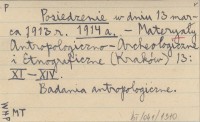 P
Posiedzenie w dniu 13 mar-
ca 1913 r. 1914 a. - Materyały
Antropologiczno-Archeologiczne
i Etnograficzne (Kraków) 13:
XI-XIV.
Badania antropologiczne.
MT
WHP